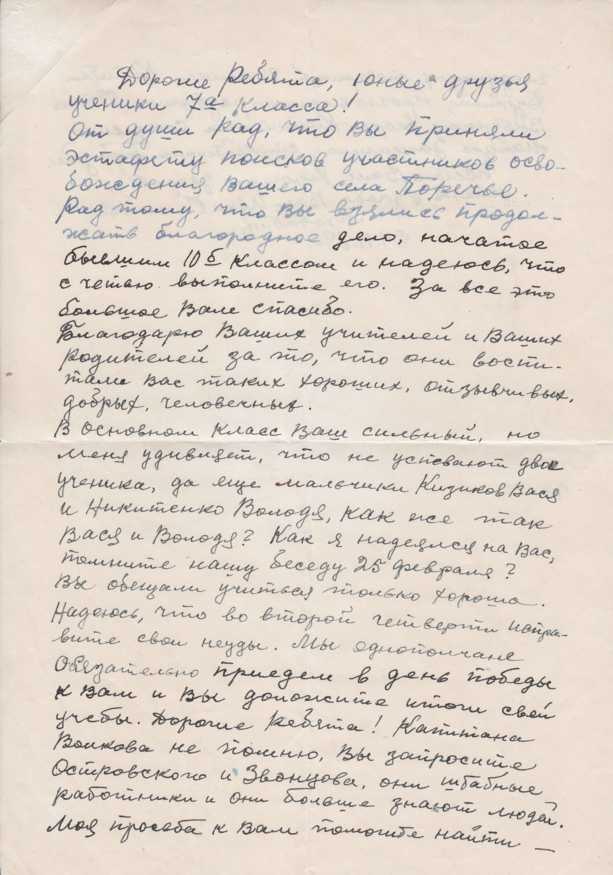 Дорогие Ребята, юные друзья
ученики 7а класса!
От души рад, что Вы приняли
эстафету поисков участников осво-
бождения Вашего села Поречье.
Рад тому, что Вы взялись продол-
жать благородное дело, начатое
бывшим 10б классом и надеюсь, что
с честью выполните его. За все это
большое Вам спасибо.
Благодарю Ваших учителей и Ваших
родителей за то, что они воспи-
тали вас таких хороших, отзывчивых,
добрых, человечных.
В основном класс Ваш сильный, но
меня удивляет, что не успевают двое
ученика, да еще мальчики Кизиков Вася
и Никитенко Володя, как же так
Вася и Володя? Как я надеялся на Вас,
помните нашу беседу 25 февраля?
Вы обещали учиться только хорошо.
Надеюсь, что во второй четверти испра-
вите свои неуды. Мы однополчане
обязательно приедем в день победы
к Вам и Вы доложите итоги своей
учебы. Дорогие Ребята! Капитана
Волкова не помню, Вы запросите
Островского и Звонцова, они штабные
работники и они больше знают людей.
Моя просьба к Вам помогите найти —